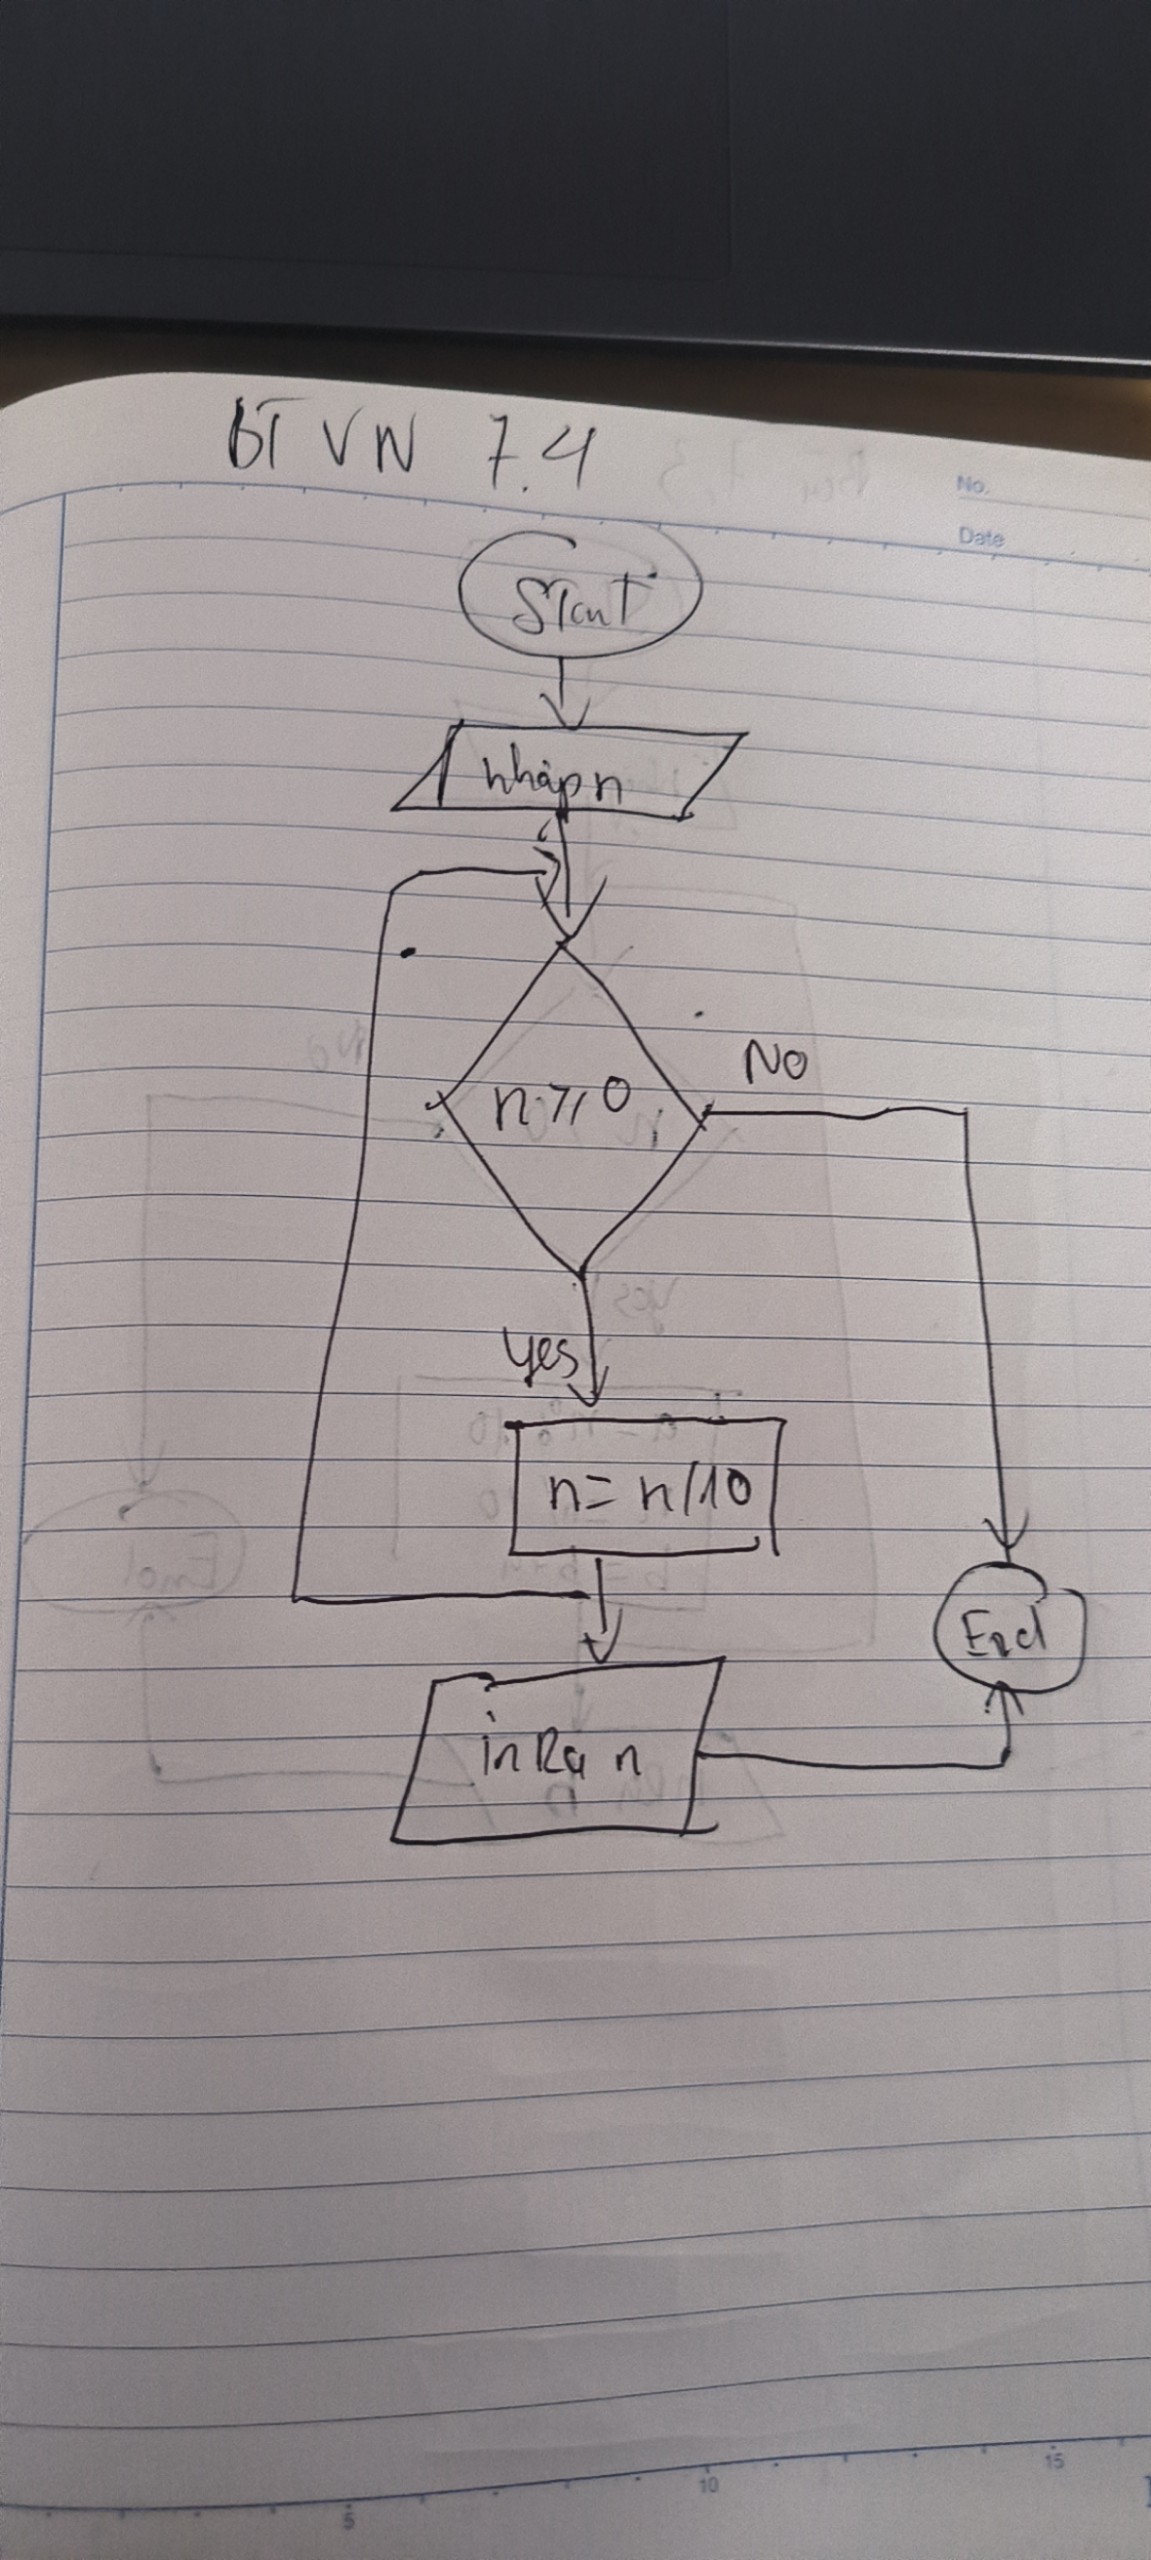 BT VN 7.4
No.
Date
Start
nhập n
n ⩾ 0
No
yes
n = n/10
End
in Ra n
5
10
15